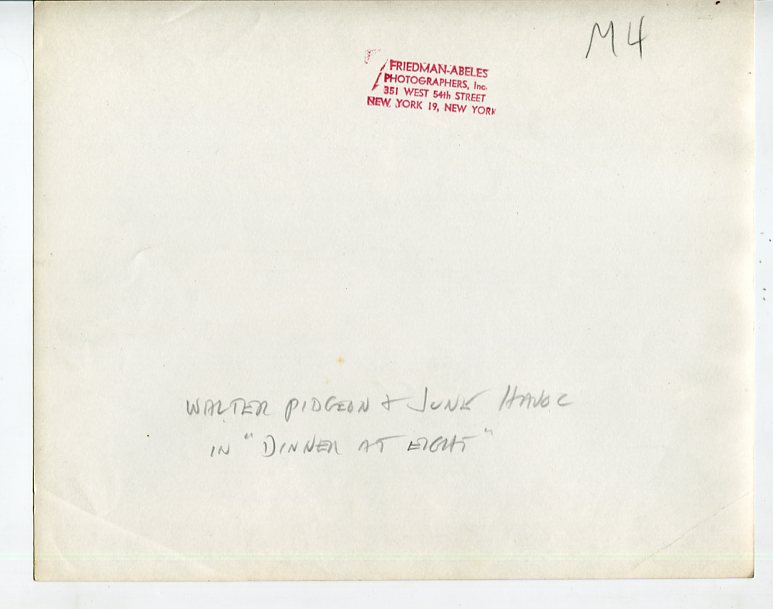 M4
FRIEDMAN-ABELES
PHOTOGRAPHERS, Inc.
351 WEST 54th STREET
NEW YORK 19, NEW YORK
WALTER PIDGEON + JUNE HAVOC
IN "DINNER AT EIGHT"